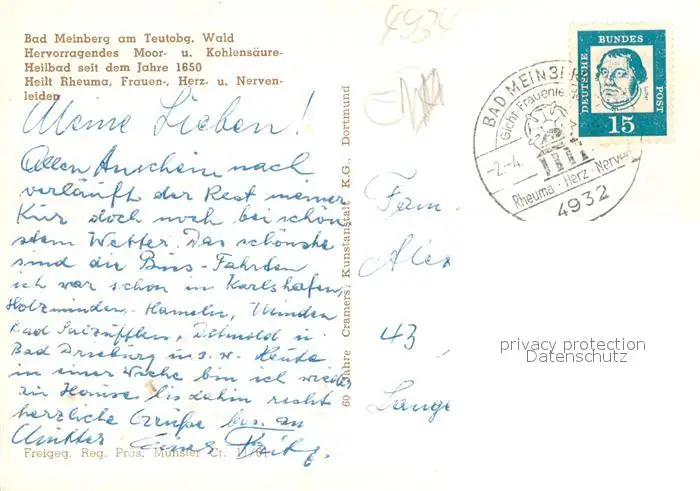 4934
Bad Meinberg am Teutobg. Wald
Hervorragendes Moor- u. Kohlensäure-
Heilbad seit dem Jahre 1650
Heilt Rheuma, Frauen-, Herz- u. Nerven-
leiden
Meine Lieben!
Allen Anschein nach
verläuft der Rest meiner
Kur doch noch bei schön
stem Wetter. Das schönste
sind die Bus-Fahrten
ich war schon in Karlshafen,
Holzminden, Hameln, Minden
Bad Salzufflen, Detmold u.
Bad Driburg u.s.w. Heute
in einer Woche bin ich wieder
zu Hause bis dahin recht
herzliche Grüße bes. an
Mutter Euer Fritz.
Freigeg. Reg. Präs. Münster Cr. 11/61
60 Jahre Cramers Kunstanstalt K.G., Dortmund
DEUTSCHE BUNDES POST
15
BAD MEINB
Gicht Frauenle
-2.-4.
Rheuma · Herz · Nerven
4932
Fam.
Alex
43
Lange
privacy protection
Datenschutz